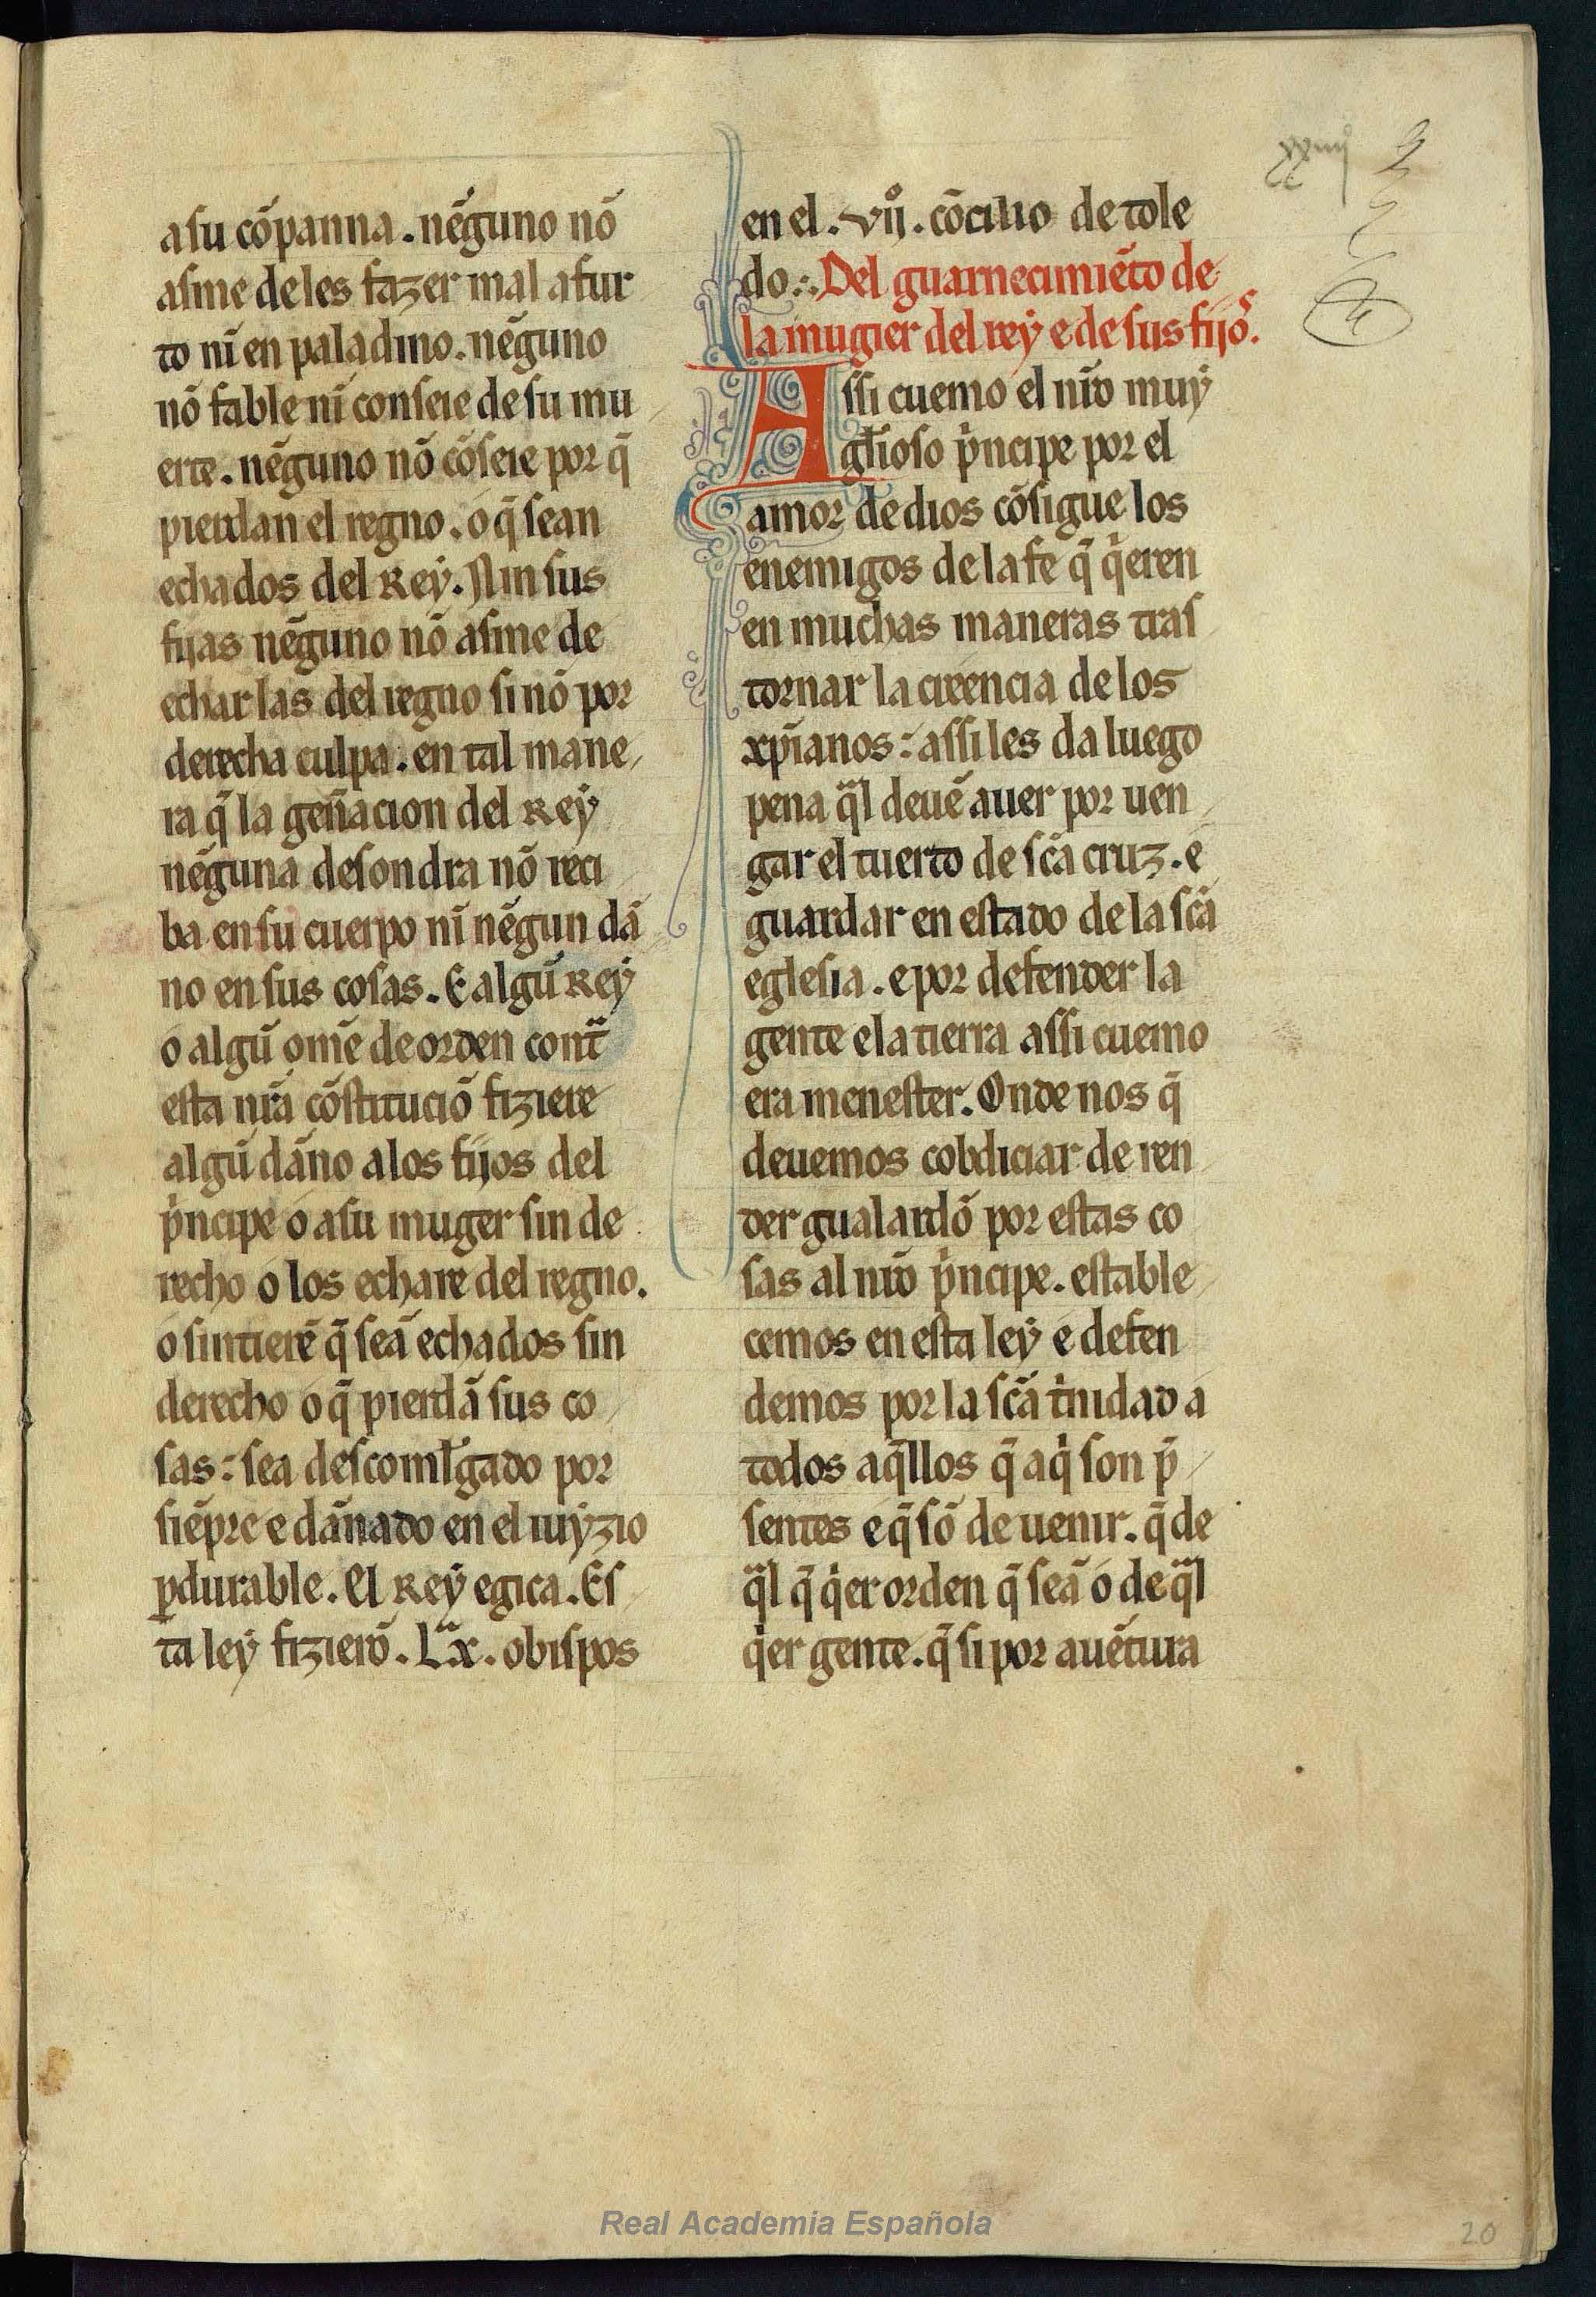 a su cõpanna. nẽguno nõ
asme de les fazer mal a fur
to nĩ en paladino. nẽguno
nõ fable nĩ conseie de su mu
erte. nẽguno nõ cõseie por q̃
pierdan el regno. o q̃ sean
echados del Rey. Nin sus
fijas nẽguno nõ asme de
echar las del regno si nõ por
derecha culpa. en tal mane
ra q̃ la geñacion del Rey
nẽguna desondra nõ reci
ba en su cuerpo nĩ nẽgun dã
no en sus cosas. E algũ Rey
o algũ omẽ de orden contᷓ
esta nr̃a cõstituciõ fiziere
algũ dãno a los fijos del
pͥncipe o a su muger sin de
recho o los echare del regno.
o sintierẽ q̃ seã echados sin
derecho o q̃ pierdã sus co
sas: sea descomlgado por
siẽpre e dãnado en el iuyzio
ꝑdurable. El Rey egica. Es
ta ley fizierõ. Lᷓx. obispos
en el. vijͦ. cõcilio de tole
do:. Del guarnecimiẽto de
la mugier del rey e de sus fijos.
Assi cuemo el nr̃o muy
gl̃ioso pͥncipe por el
amor de dios cõsigue los
enemigos de la fe q̃ qͥeren
en muchas maneras tras
tornar la creencia de los
xp̃ianos: assi les da luego
pena qᷓl deuẽ auer por uen
gar el tuerto de sc̃a cruz. e
guardar en estado de la sc̃a
eglesia. e por defender la
gente e la tierra assi cuemo
era menester. Onde nos q̃
deuemos cobdiciar de ren
der gualardõ por estas co
sas al nr̃o pͥncipe. estable
cemos en esta ley e defen
demos por la sc̃a tͥnidad a
todos aq̃llos q̃ aqͥ son p̃
sentes e q̃ sõ de uenir. q̃ de
qᷓl q̃ qͥer orden q̃ seã o de qᷓl
qͥer gente. q̃ si por auẽtura
xxiiijͦ
Real Academia Española
20